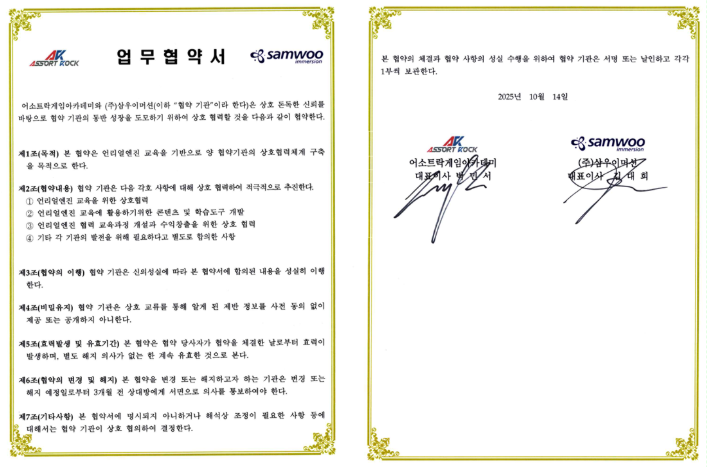 ASSORT ROCK
업무협약서
samwoo
immersion
어소트락게임아카데미와 (주)삼우이머션(이하 “협약 기관”이라 한다)은 상호 돈독한 신뢰를
바탕으로 협약 기관의 동반 성장을 도모하기 위하여 상호 협력할 것을 다음과 같이 협약한다.
제1조(목적) 본 협약은 언리얼엔진 교육을 기반으로 양 협약기관의 상호협력체계 구축
을 목적으로 한다.
제2조(협약내용) 협약 기관은 다음 각호 사항에 대해 상호 협력하여 적극적으로 추진한다.
① 언리얼엔진 교육을 위한 상호협력
② 언리얼엔진 교육에 활용하기위한 콘텐츠 및 학습도구 개발
③ 언리얼엔진 협력 교육과정 개설과 수익창출을 위한 상호 협력
④ 기타 각 기관의 발전을 위해 필요하다고 별도로 합의한 사항
제3조(협약의 이행) 협약 기관은 신의성실에 따라 본 협약서에 합의된 내용을 성실히 이행
한다.
제4조(비밀유지) 협약 기관은 상호 교류를 통해 알게 된 제반 정보를 사전 동의 없이
제공 또는 공개하지 아니한다.
제5조(효력발생 및 유효기간) 본 협약은 협약 당사자가 협약을 체결한 날로부터 효력이
발생하며, 별도 해지 의사가 없는 한 계속 유효한 것으로 본다.
제6조(협약의 변경 및 해지) 본 협약을 변경 또는 해지하고자 하는 기관은 변경 또는
해지 예정일로부터 3개월 전 상대방에게 서면으로 의사를 통보하여야 한다.
제7조(기타사항) 본 협약서에 명시되지 아니하거나 해석상 조정이 필요한 사항 등에
대해서는 협약 기관이 상호 협의하여 결정한다.
본 협약의 체결과 협약 사항의 성실 수행을 위하여 협약 기관은 서명 또는 날인하고 각각
1부씩 보관한다.
2025년 10월 14일
ASSORT ROCK
어소트락게임아카데미
대표이사 민서
samwoo
immersion
(주)삼우이머션
대표이사 김대희